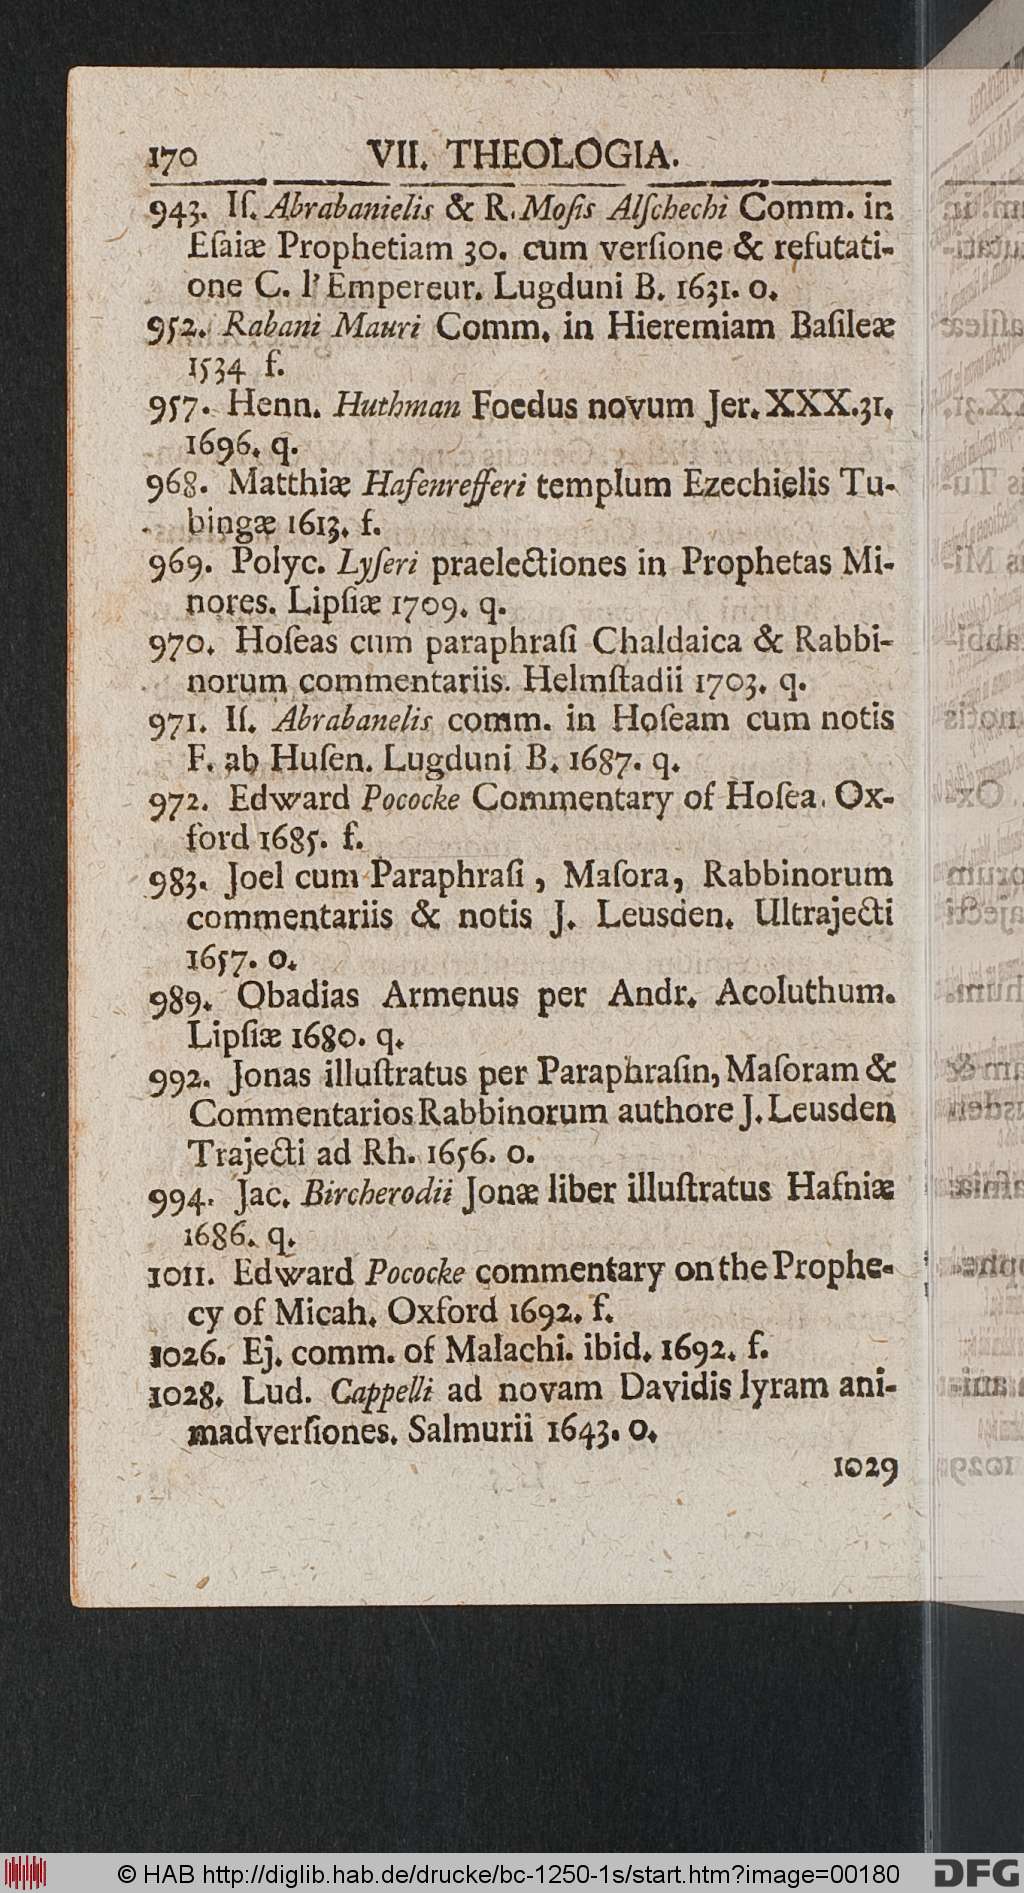 170 VII. THEOLOGIA.
943. Iſ. Abrabanielis & R. Moſis Alſchechi Comm. in
Eſaiæ Prophetiam 30. cum verſione & refutati-
one C. l' Empereur. Lugduni B. 1631. o.
952. Rabani Mauri Comm. in Hieremiam Baſileæ
1534 f.
957. Henn. Huthman Foedus novum Jer. XXX.31.
1696. q.
968. Matthiæ Hafenrefferi templum Ezechielis Tu-
bingæ 1613. f.
969. Polyc. Lyſeri praelectiones in Prophetas Mi-
nores. Lipſiæ 1709. q.
970. Hoſeas cum paraphraſi Chaldaica & Rabbi-
norum commentariis. Helmſtadii 1703. q.
971. Iſ. Abrabanelis comm. in Hoſeam cum notis
F. ab Huſen. Lugduni B. 1687. q.
972. Edward Pococke Commentary of Hoſea. Ox-
ford 1685. f.
983. Joel cum Paraphraſi, Maſora, Rabbinorum
commentariis & notis J. Leusden. Ultrajecti
1657. o.
989. Obadias Armenus per Andr. Acoluthum.
Lipſiæ 1680. q.
992. Jonas illuſtratus per Paraphraſin, Maſoram &
Commentarios Rabbinorum authore J. Leusden
Trajecti ad Rh. 1656. o.
994. Jac. Bircherodii Jonæ liber illuſtratus Hafniæ
1686. q.
1011. Edward Pococke commentary on the Prophe-
cy of Micah. Oxford 1692. f.
1026. Ej. comm. of Malachi. ibid. 1692. f.
1028. Lud. Cappelli ad novam Davidis lyram ani-
madverſiones. Salmurii 1643. o.
1029
© HAB http://diglib.hab.de/drucke/bc-1250-1s/start.htm?image=00180 DFG